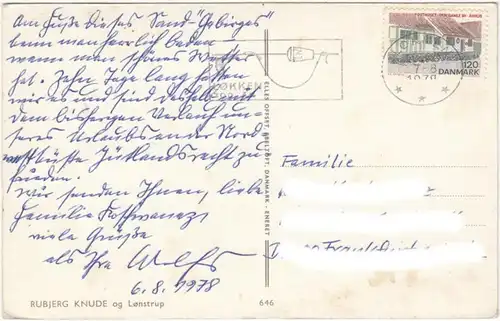 Am Fuße dieses Sand-"Gebirges"
kann man herrlich baden
wenn man schönes Wetter
hat. Zehn Tage lang hatten
wir es und sind deshalb mit
dem bisherigen Verlauf un-
seres Urlaubs an der Nord
westküste Jütlands recht zu-
frieden.
Wir senden Ihnen, liebe
Familie
viele Grüße
als Ihre
6.8.1978
RUBJERG KNUDE og Lønstrup
646
ELLER OFFSET, EBELTOFT, DANMARK - ENERET
LØKKEN
120
DANMARK
Familie